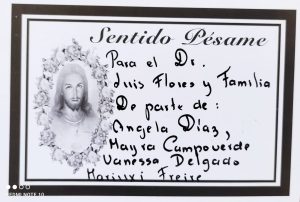 Sentido Pésame
Para el Dr.
Luis Flores y Familia
De parte de:
Angela Díaz,
Mayra Campoverde
Vanessa Delgado
Mariuxi Freire
REDMI NOTE 10